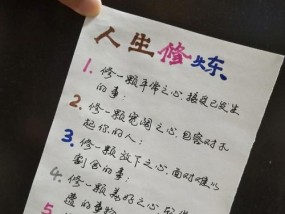 人生修炼
1. 修一颗平常之心,接受已发生
的事;
2. 修一颗宽阔之心,包容对不
起你的人;
3. 修一颗放下之心,面对难以
割舍的事;
4. 修一颗美好之心,
的事物
5